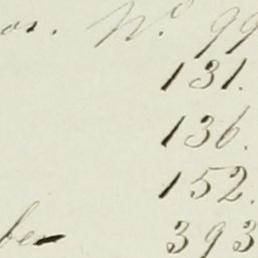 os. No 99
131.
136.
152.
be 393